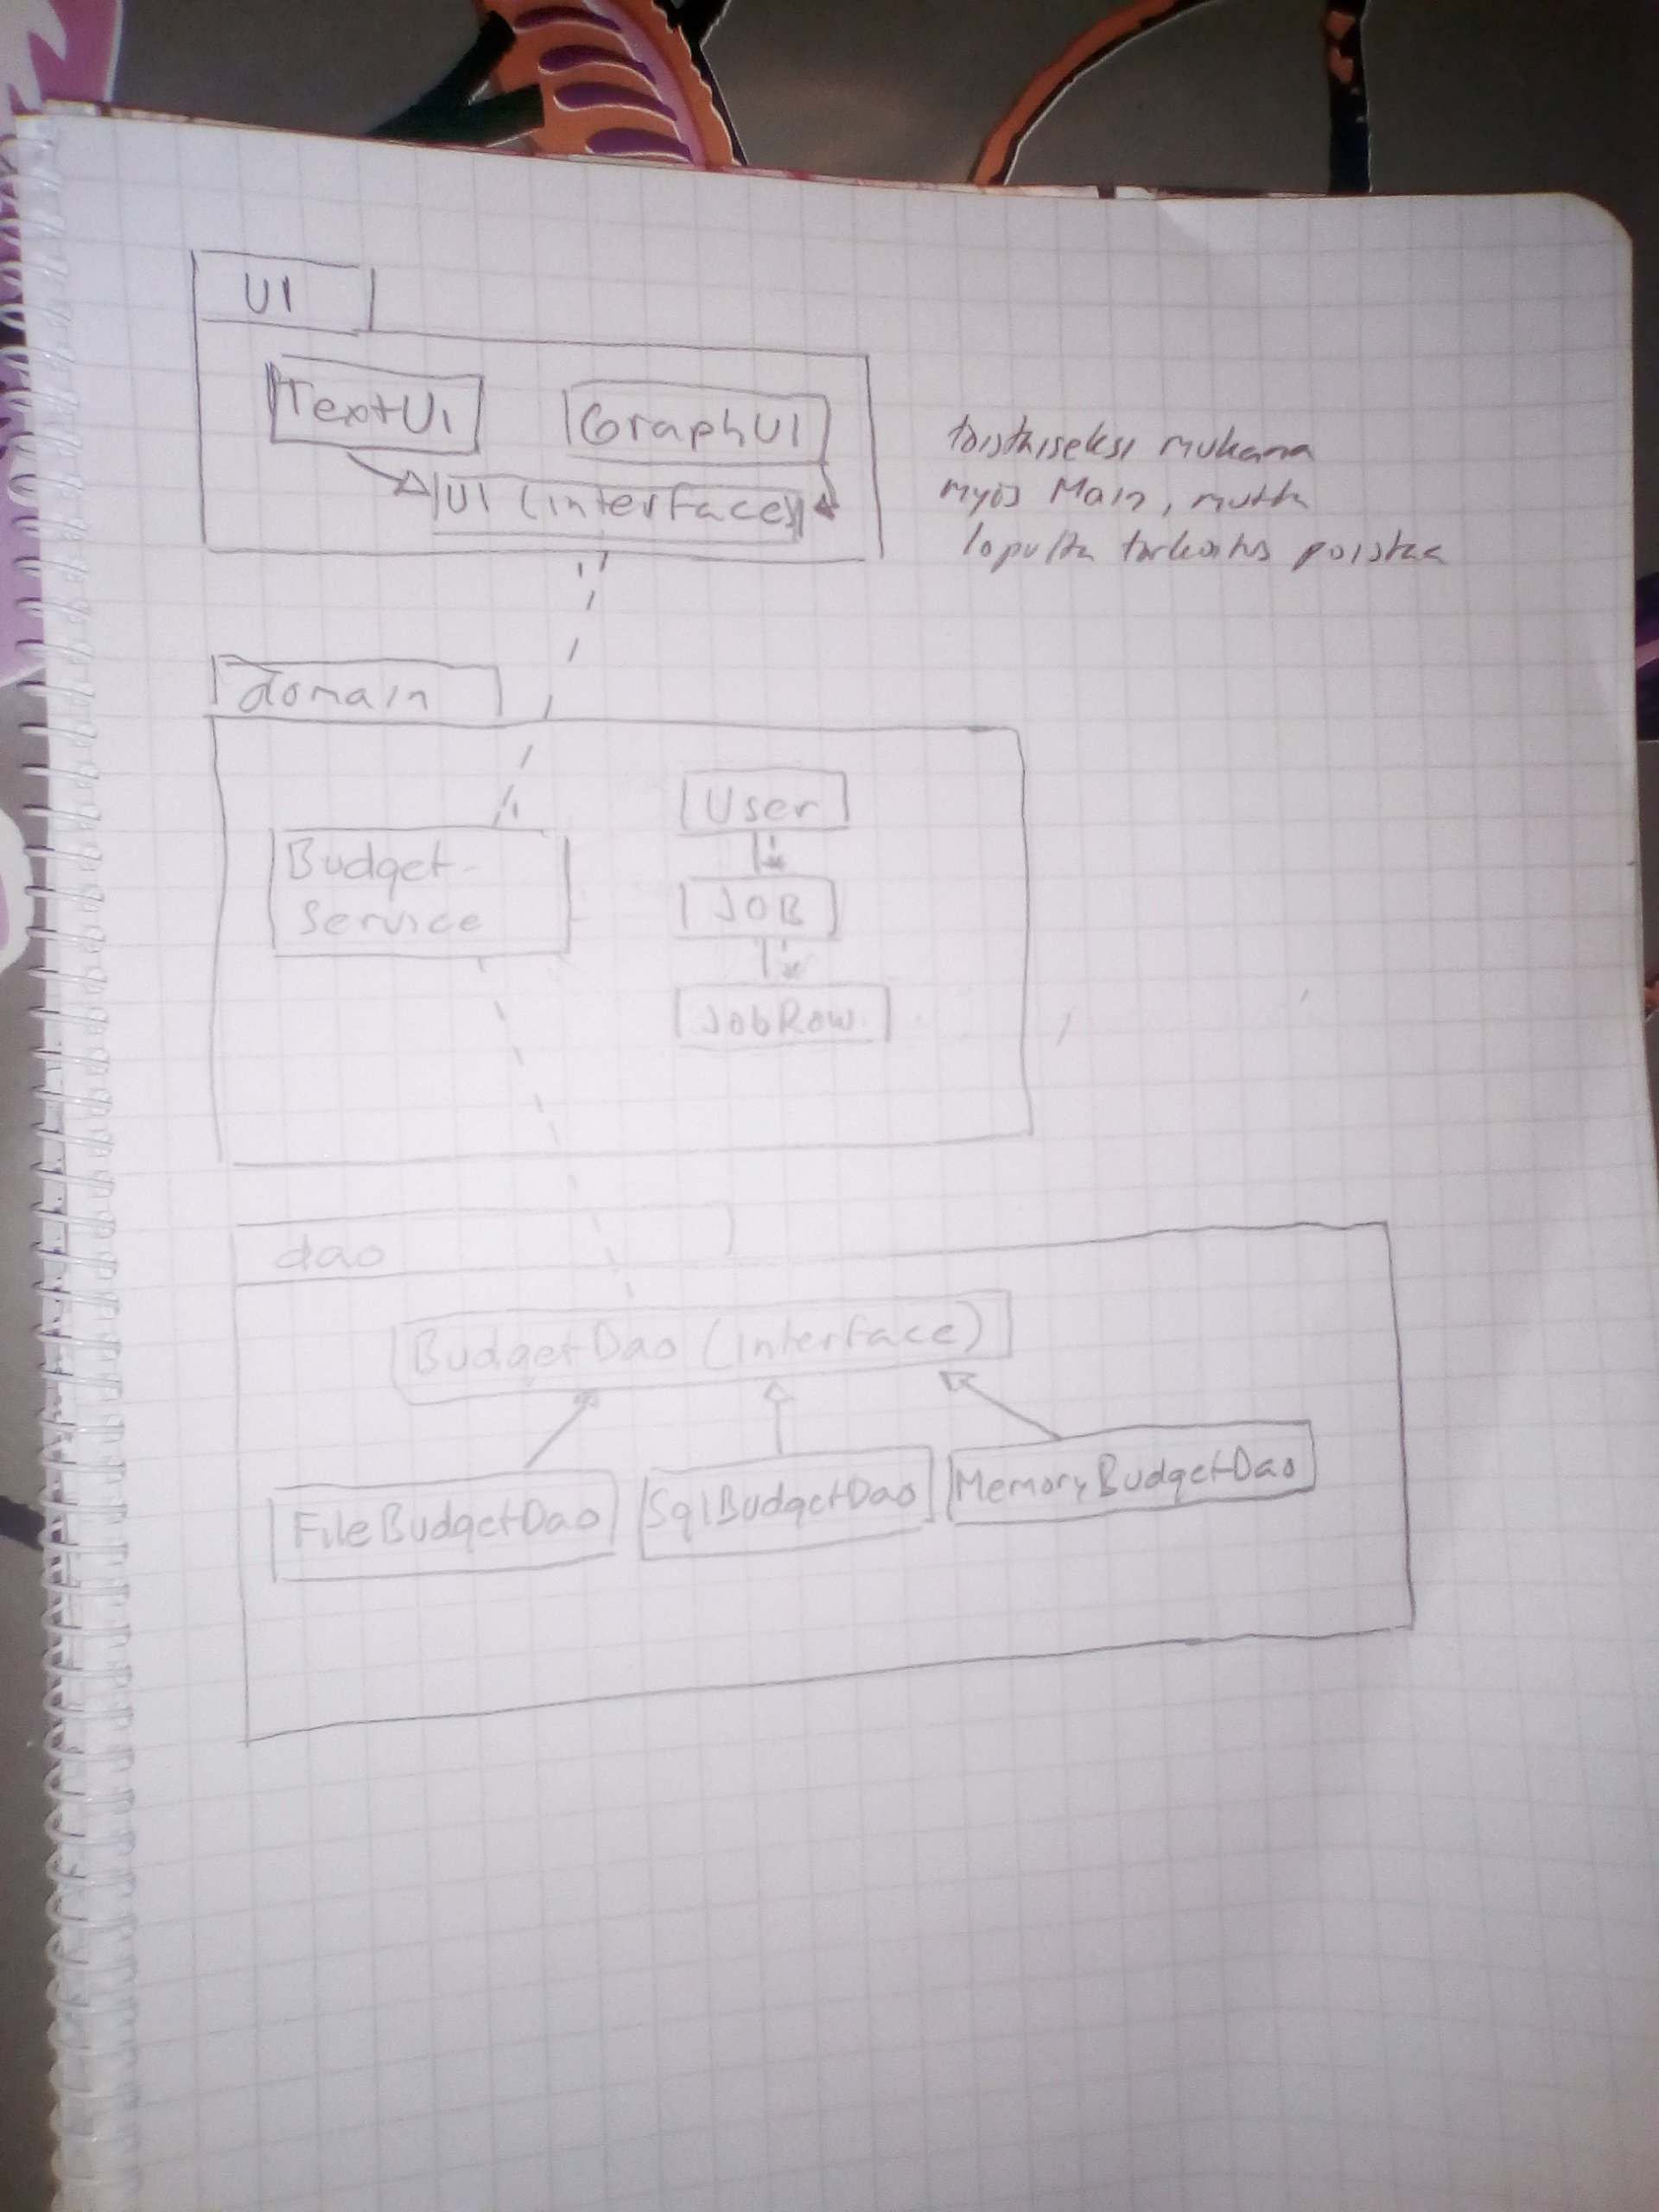 UI
TextUi
GraphUI
UI (interface)
toistaiseksi mukana
myös Main, mutta
lopulta tarkoitus poistaa
domain
Budget-
Service
User
JOB
JobRow
dao
BudgetDao (interface)
FileBudgetDao
SqlBudgetDao
MemoryBudgetDao